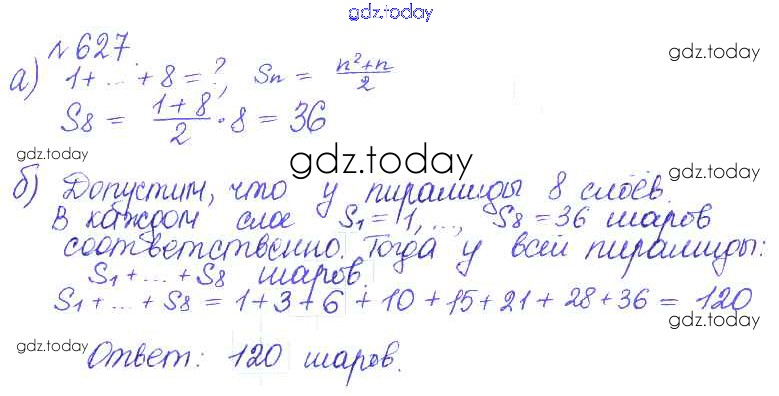 gdz.today
№ 627.
gdz.today
а) 1+...+8=?, Sn = n²+n/2
S8 = 1+8/2 · 8 = 36
gdz.today
gdz.today
gdz.today
б) Допустим, что у пирамиды 8 слоёв.
В каждом слое S1=1, ..., S8=36 шаров
соответственно. Тогда у всей пирамиды:
S1+...+S8 шаров.
S1+...+S8 = 1+3+6+10+15+21+28+36 = 120
gdz.today
gdz.today
Ответ: 120 шаров.